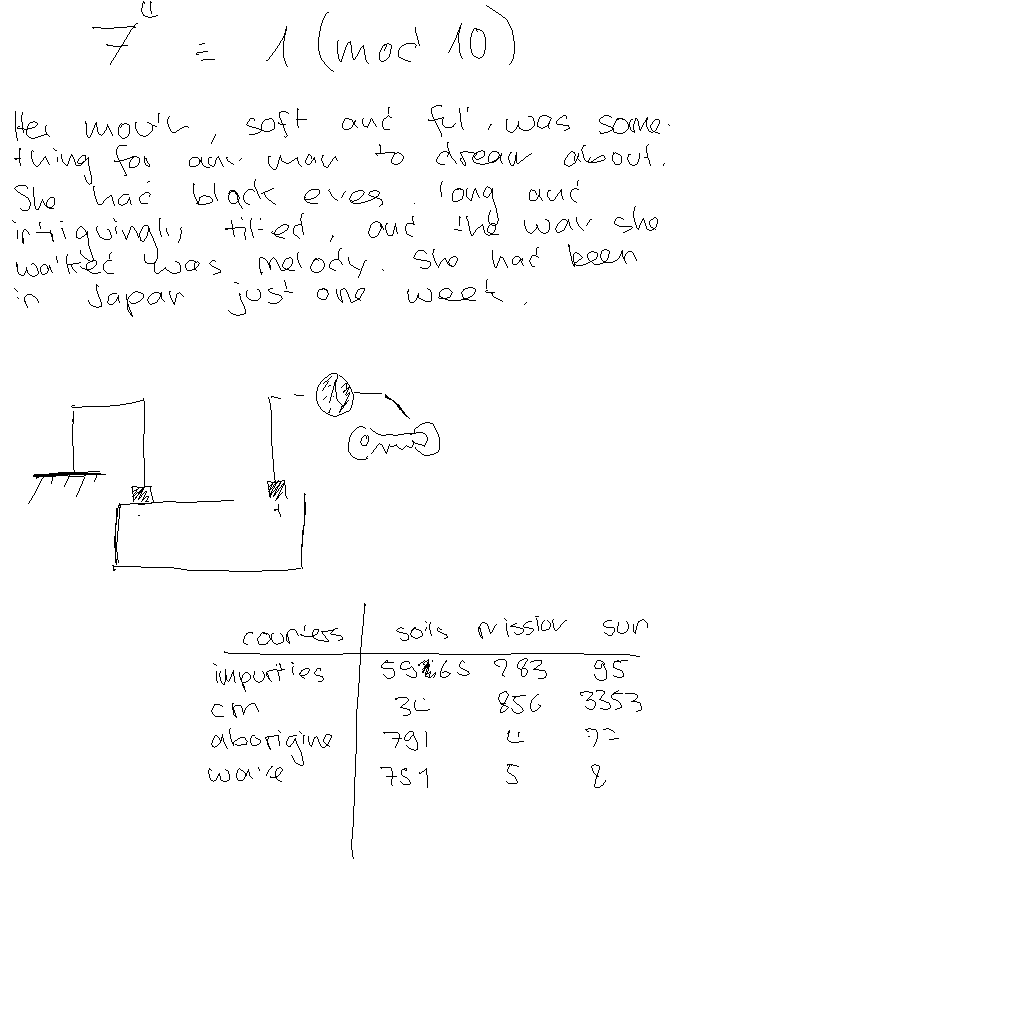 7^4 ≡ 1 (mod 10)
Her mouth, soft and full, was some-
thing for any man to dream about.
She had black eyes, long and
intriguingly tilted, and the way she
walked was melody. She had been
in Japan just one week.
counters soils mission sun
impurties 283 95
cm 34 856 3353
aborigine 791 4
751 5 8